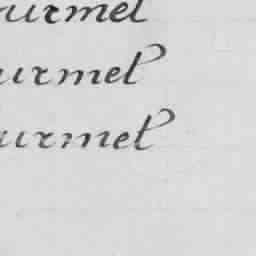 urmet
urmet
urmet